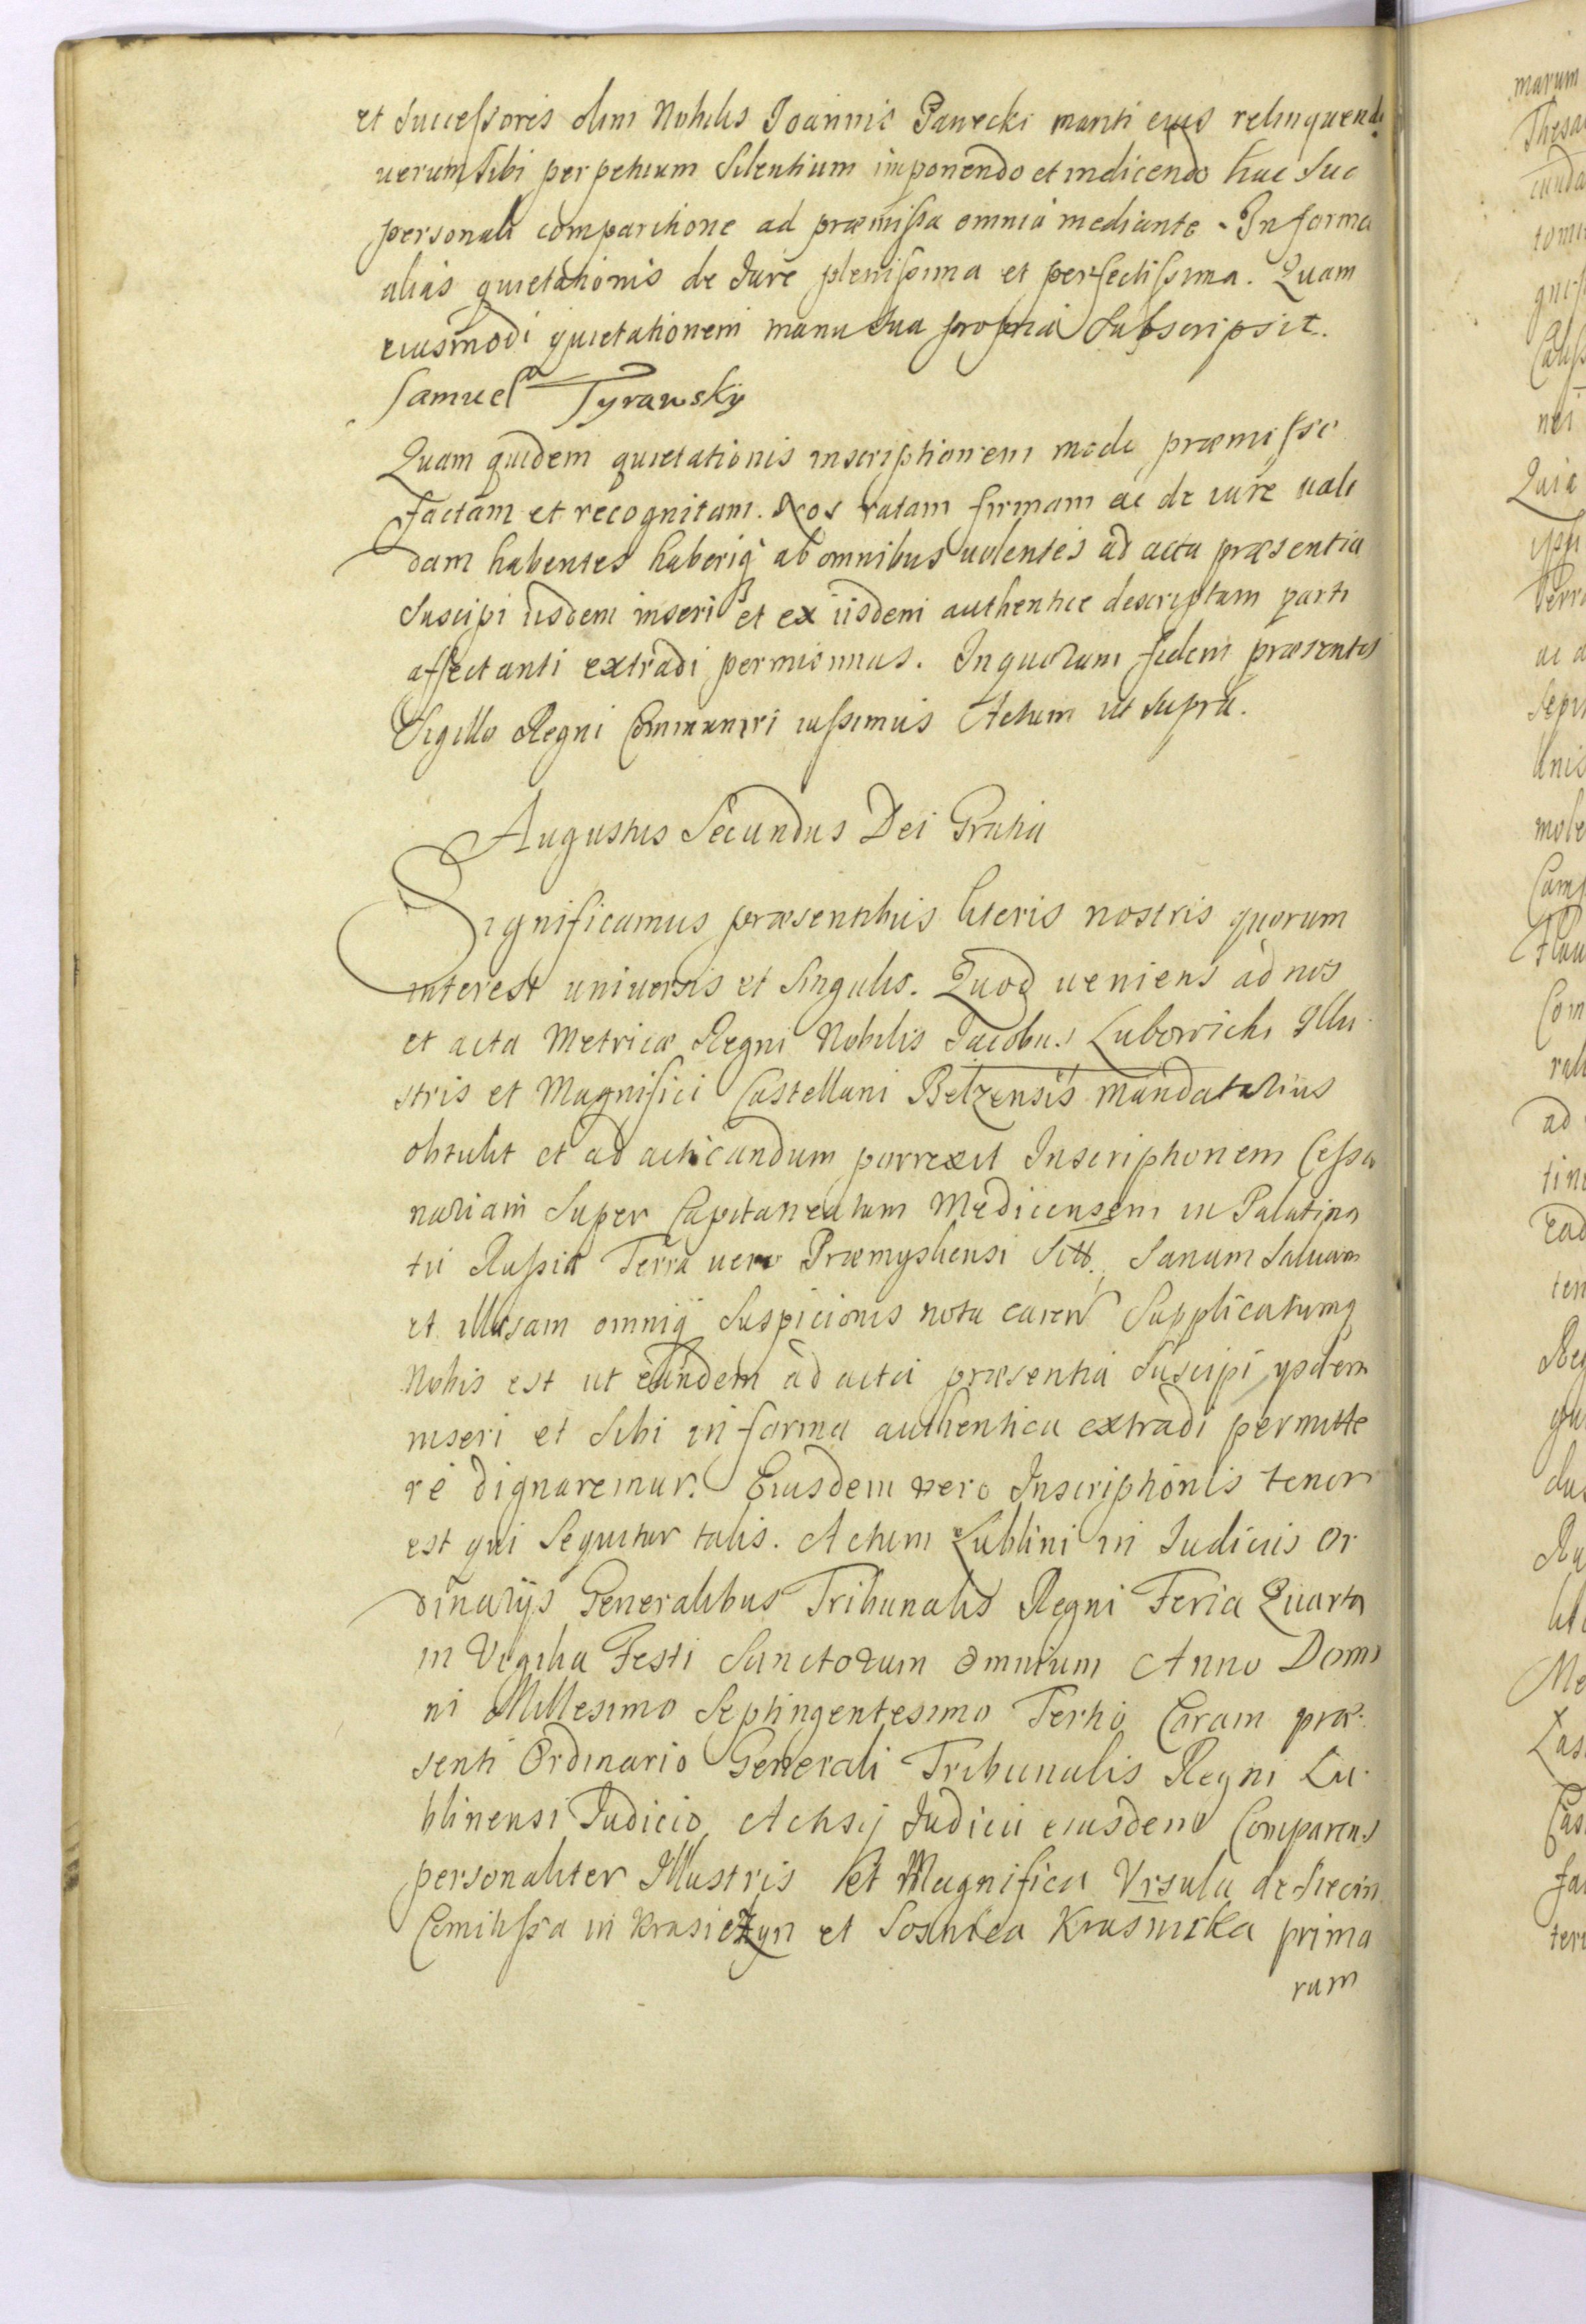 et Successoris olim Nobilis Ioannis Pawecki mariti eius relinquendi
uerum Sibi perpetuum Silentium imponendo et indicendo hac Sua
personali comparitione ad præmissa omnia mediante. In forma
alias quietationis de Iure plenissima et perfectissima. Quam
eiusmodi quietationem manu Sua propria Subscripsit.
Samuel Tyrawsky
Quam quidem quietationis inscriptionem modo præmisso
factam et recognitam. Nos ratam firmam ac de iure uali
dam habentes haberiq ab omnibus uolentes ad acta præsentia
Suscipi iisdem inseri et ex iisdem authentice descriptam parti
affectanti extradi permisimus. In quorum fidem præsentes
Sigillo Regni Communiri iussimus Actum ut Supra.
Augustus Secundus Dei Gratia
Significamus præsentibus literis nostris quorum
interest uniuersis et Singulis. Quod ueniens ad nos
et acta Metricæ Regni Nobilis Iacobus Lubowicki Illu
stris et Magnifici Castellani Belzensis mandatarius
obtulit et ad acticandum porrexit Inscriptionem Cessio
nariam Super Capitaneatum Medicensem in Palatina
tu Russiæ Terra uero Præmysliensi Sitt. Sanam Saluam
et illæsam omniq Suspicionis nota caren Supplicatumq
Nobis est ut eandem ad acta præsentia Suscipi ysdem
inseri et Sibi in forma authentica extradi permitte
re dignaremur. Eiusdem vero Inscriptionis tenor
est qui Sequitur talis. Actum Lublini in Iudiciis Or
dinarijs Generalibus Tribunalis Regni Feria Quarta
in Vigilia Festi Sanctorum Omnium Anno Domi
ni Millesimo Septingentesimo Tertio Coram præ
senti Ordinario Generali Tribunalis Regni Lu
blinensi Iudicio Actisq Iudicii eiusdem Comparens
personaliter Illustris et Magnifica Vrsula de Siecin
Comitissa in Krasiczyn et Sosnica Krasnicka prima
rum
marum
Quia
ad